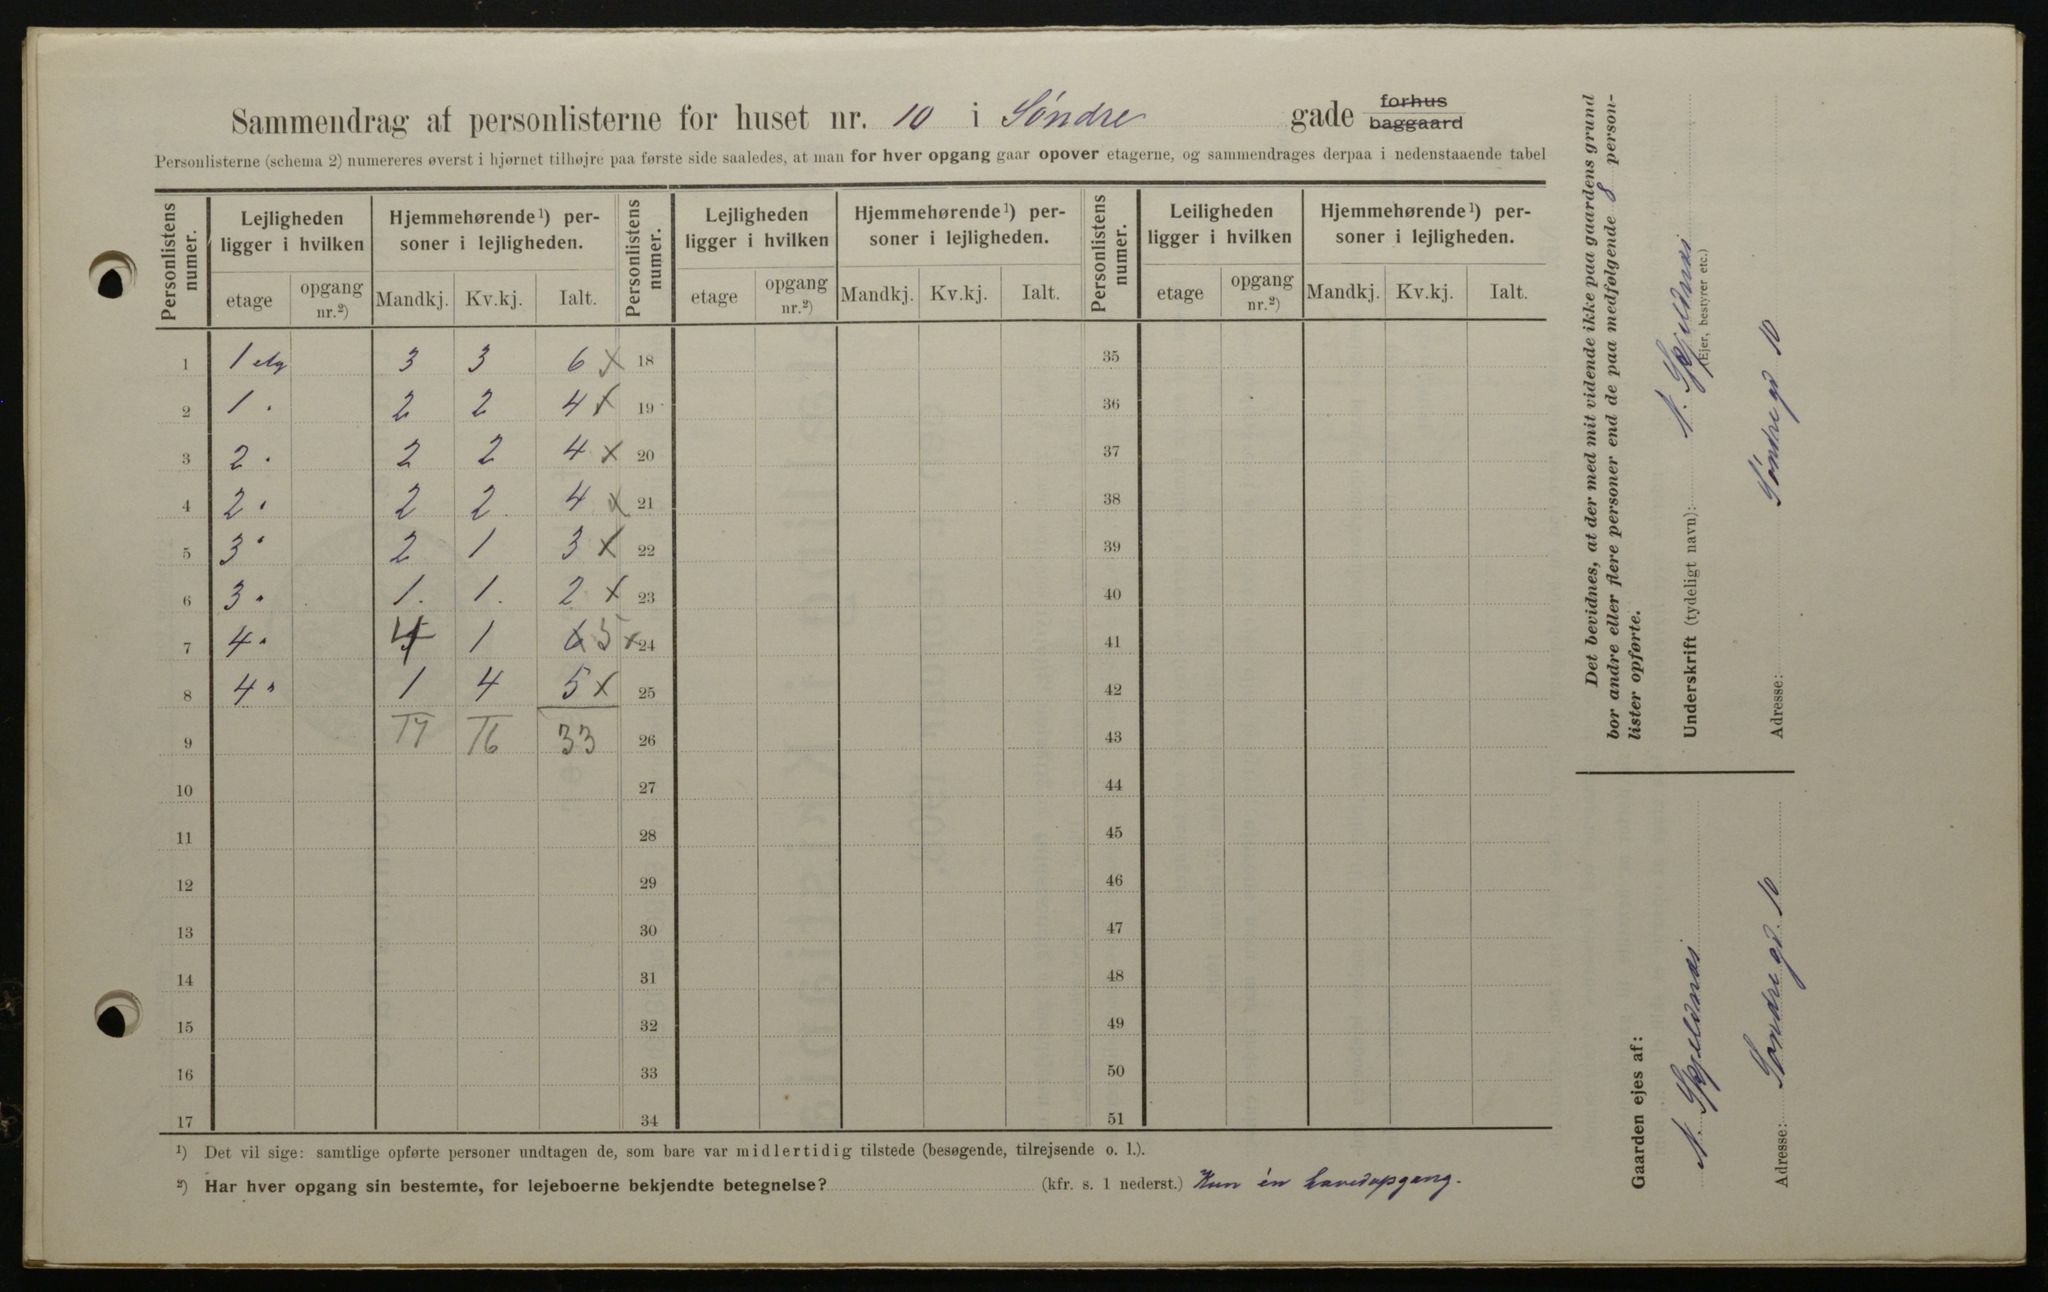 Sammendrag af personlisterne for huset nr. 10 i Söndre gade forhus baggaard
Personlisterne (schema 2) numereres øverst i hjørnet tilhøjre paa første side saaledes, at man for hver opgang gaar opover etagerne, og sammendrages derpaa i nedenstaaende tabel
Personlistens numer. Lejligheden ligger i hvilken Hjemmehørende¹) personer i lejligheden. Personlistens numer. Lejligheden ligger i hvilken Hjemmehørende¹) personer i lejligheden. Personlistens numer. Leiligheden ligger i hvilken Hjemmehørende¹) personer i lejligheden.
etage opgang nr.²) Mandkj. Kv.kj. Ialt. etage opgang nr.²) Mandkj. Kv.kj. Ialt. etage opgang nr.²) Mandkj. Kv.kj. Ialt.
1 1 etg 3 3 6 x 18 35
2 1 " 2 2 4 x 19 36
3 2 " 2 2 4 x 20 37
4 2 " 2 2 4 x 21 38
5 3 " 2 1 3 x 22 39
6 3 " 1 1 2 x 23 40
7 4 " 4 1 6 5 x 24 41
8 4 " 1 4 5 x 25 42
9 17 16 33 26 43
10 27 44
11 28 45
12 29 46
13 30 47
14 31 48
15 32 49
16 33 50
17 34 51
¹) Det vil sige: samtlige opførte personer undtagen de, som bare var midlertidig tilstede (besøgende, tilrejsende o. l.).
²) Har hver opgang sin bestemte, for lejeboerne bekjendte betegnelse? (kfr. s. 1 nederst.) Kun én hovedopgang.
Det bevidnes, at der med mit vidende ikke paa gaardens grund
bor andre eller flere personer end de paa medfølgende 8 person-
lister opførte.
Underskrift (tydeligt navn): N. Gjeldnæs
(Ejer, bestyrer etc.)
Adresse: Söndregd 10
Gaarden ejes af:
N. Gjeldnæs
Adresse: Söndregd. 10